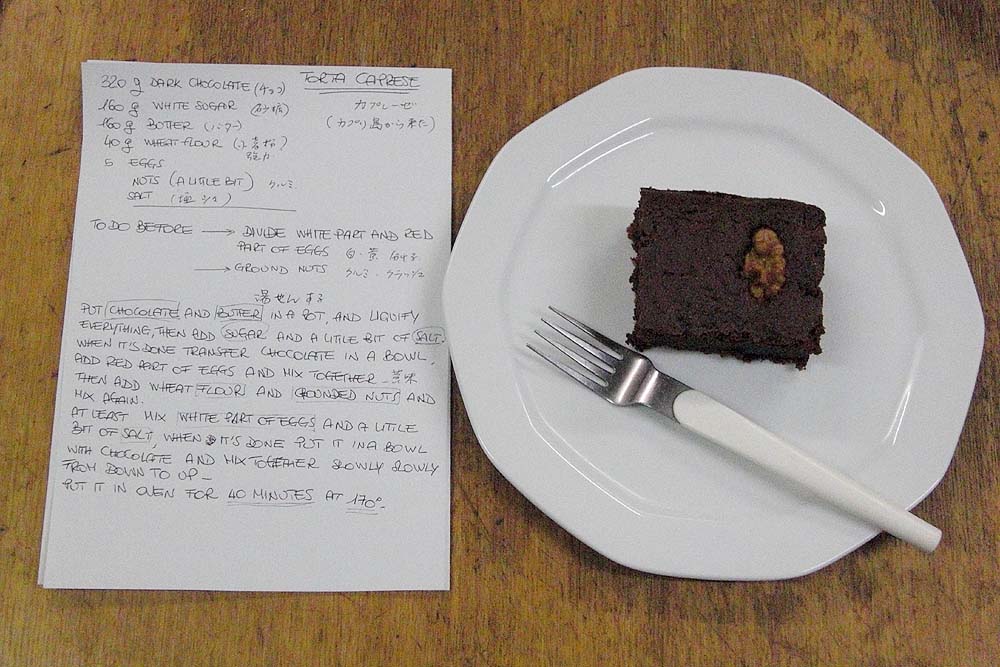 TORTA CAPRESE
カプレーゼ
(カプリ島から来た)
320 g DARK CHOCOLATE (チョコ)
160 g WHITE SUGAR (砂糖)
160 g BUTTER (バター)
40 g WHEAT FLOUR
強力
5 EGGS
NUTS (A LITLE BIT) クルミ
SALT
TO DO BEFORE → DIVIDE WHITE PART AND RED
PART OF EGGS 白・黄
→ GROUND NUTS クルミ・クラッシュ
湯せんする
PUT CHOCOLATE AND BUTTER IN A POT, AND LIQUIFY
EVERYTHING, THEN ADD SUGAR AND A LITLE BIT OF SALT.
WHEN IT'S DONE TRANSFER CHOCOLATE IN A BOWL.
ADD RED PART OF EGGS AND MIX TOGETHER_
THEN ADD WHEAT FLOUR AND GROUNDED NUTS AND
MIX AGAIN.
AT LEAST MIX WHITE PART OF EGGS AND A LITTLE
BIT OF SALT, WHEN IT'S DONE PUT IT IN A BOWL
WITH CHOCOLATE AND MIX TOGETHER SLOWLY SLOWLY
FROM DOWN TO UP_
PUT IT IN OVEN FOR 40 MINUTES AT 170°.